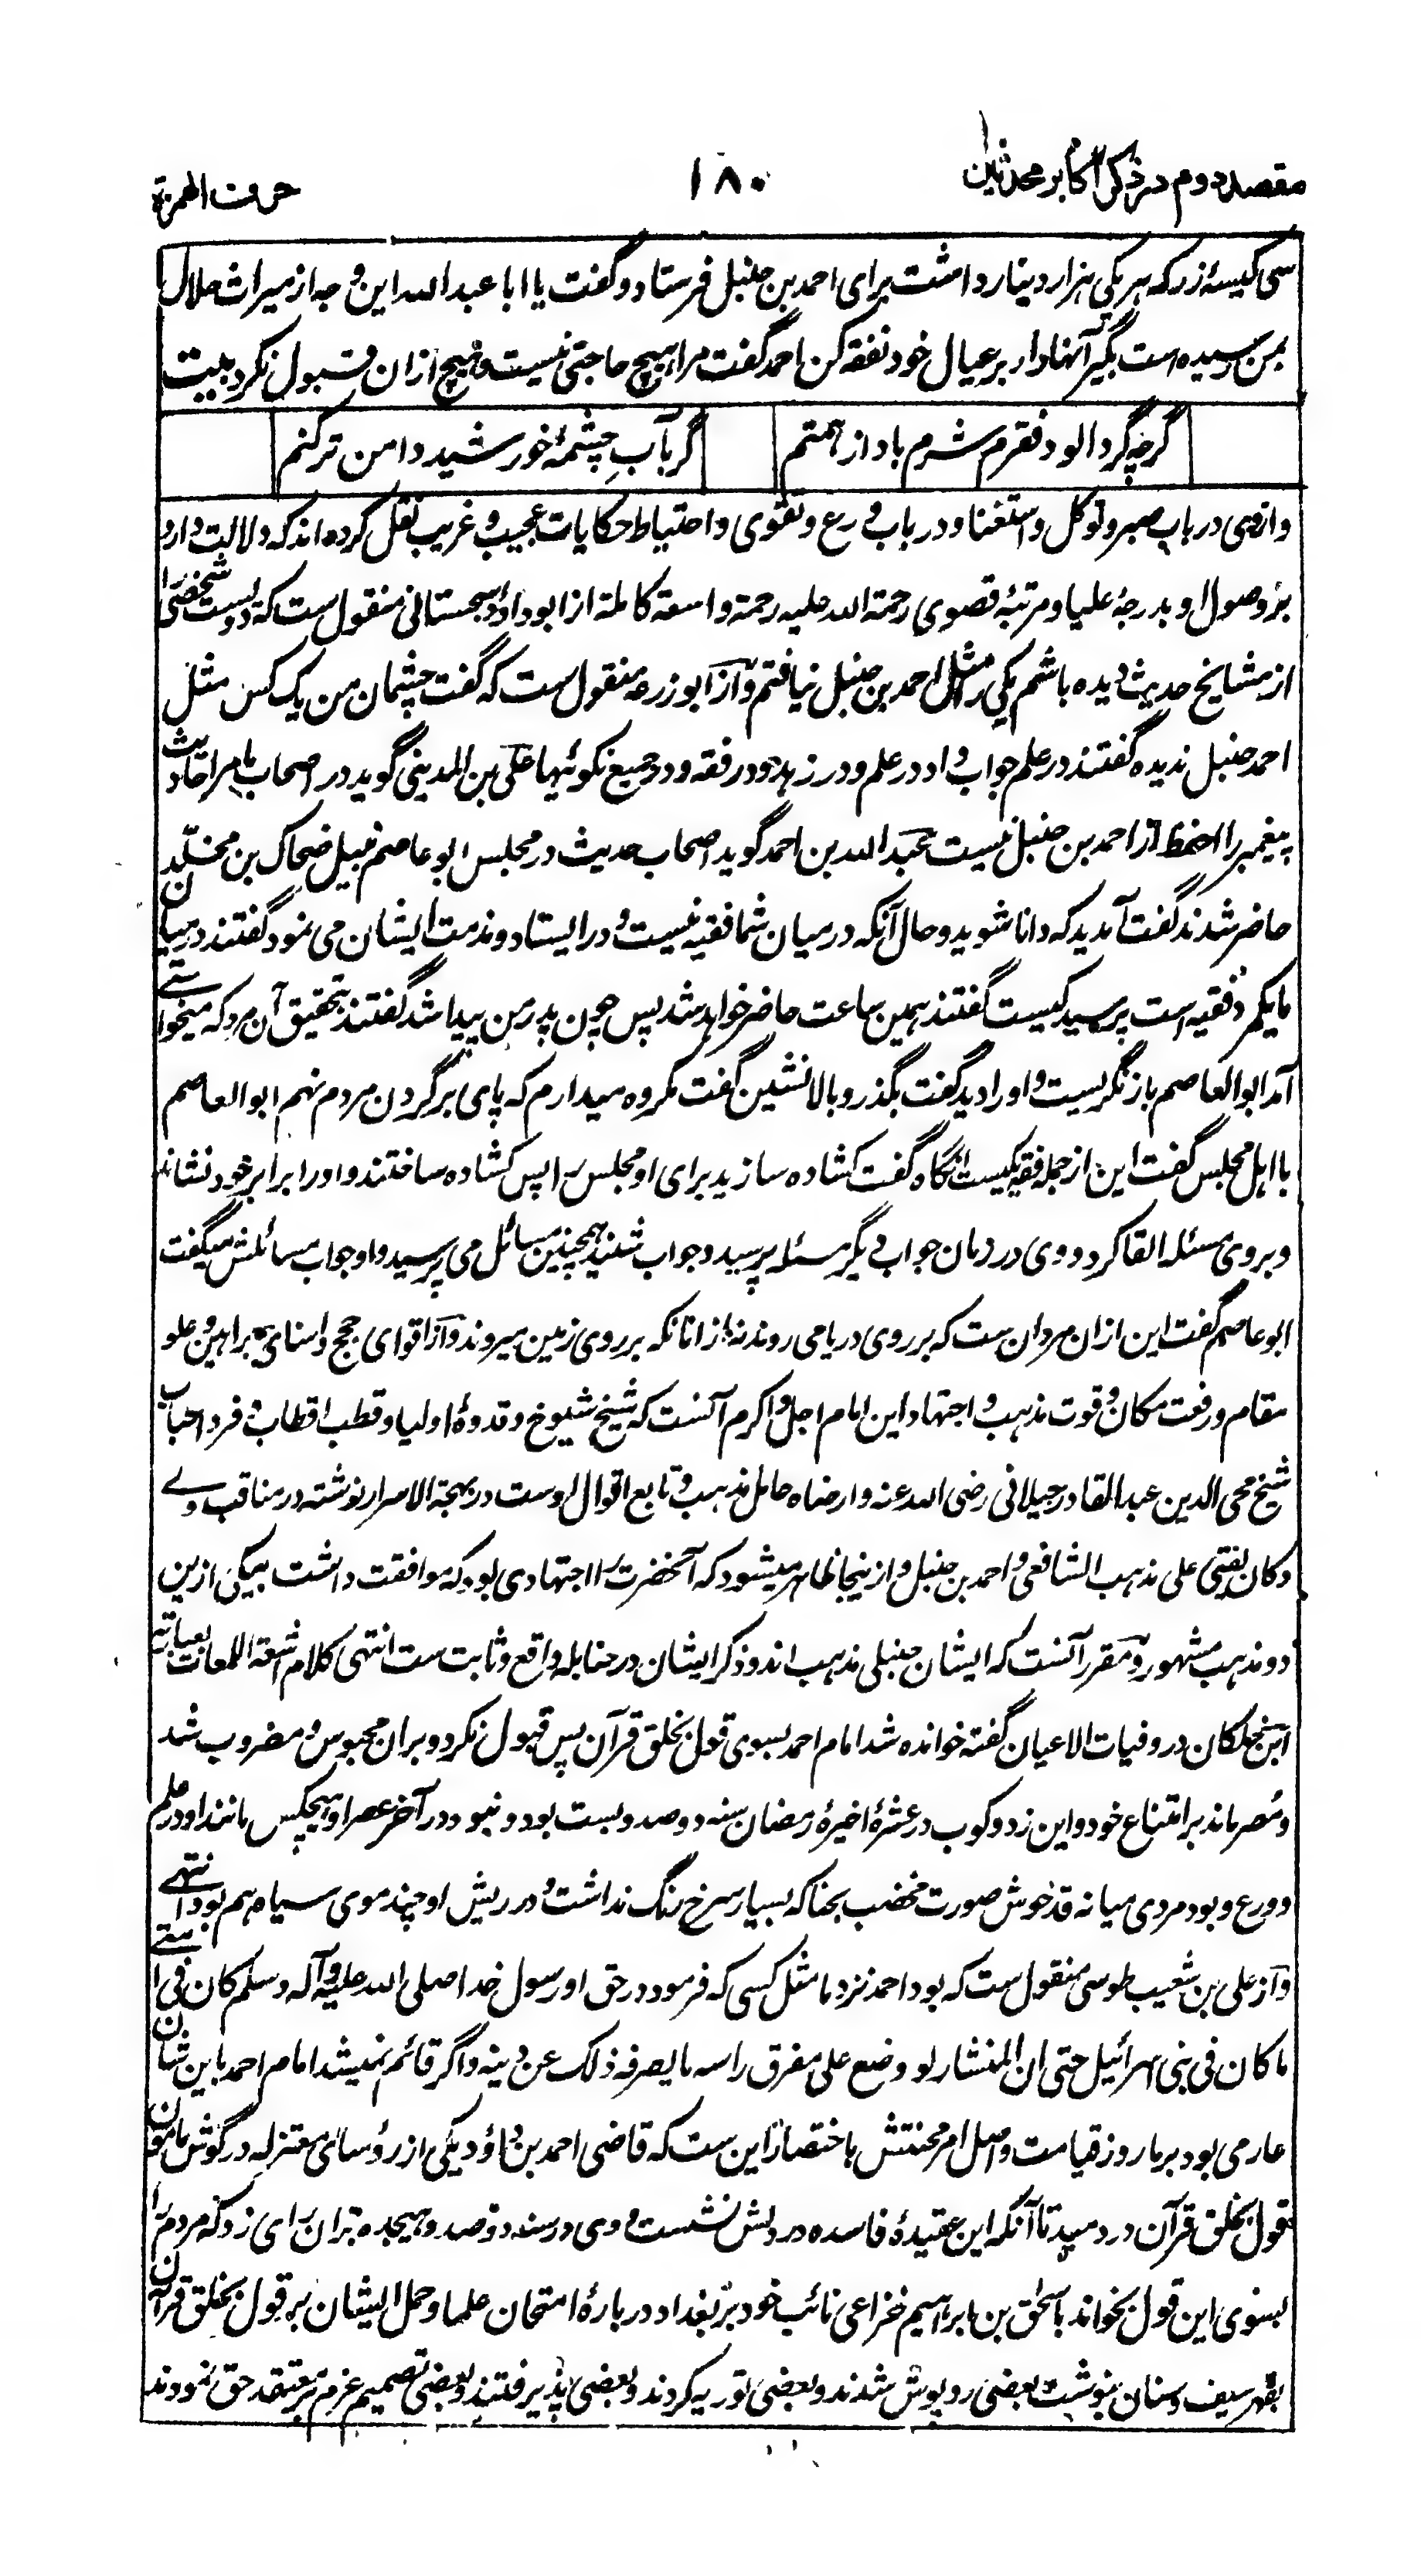 مقصد دوم در ذکر اکابر محدثین
۱۸۰
حرف الهمزة
سی کیسۀ زر که هر یکی هزار دینار داشت برای احمد بن حنبل فرستاد و گفت یا ابا عبد الله این وجه از میراث حلال
بمن رسیده است بگیر آنها را و بر عیال خود نفقه کن احمد گفت مرا هیچ حاجتی نیست و هیچ ازان قبول نکرد بیت
گرچه گرد آلود فقرم شرم باد از همتم
گر بآب چشمۀ خورشید دامن تر کنم
و از وی در باب صبر و توکل و استغنا و در باب ورع و تقوی و احتیاط حکایات عجیب و غریب نقل کرده اند که دلالت دارد
بر وصول او بدرجۀ علیا و مرتبۀ قصوی رحمة الله علیه رحمة واسعة کاملة از ابو داؤد سجستانی منقول ست که دویست شخصی را
از مشایخ حدیث دیده باشم یکی را مثل احمد بن حنبل نیافتم و از ابو زرعه منقول ست که گفت چشمان من یک کس مثل
احمد حنبل ندیده گفتند در علم جواب داد در علم و در زهد و در فقه و در جمیع نکوئیها علی بن المدینی گوید در اصحاب ما مر احادیث
پیغمبر را احفظ از احمد بن حنبل نیست عبد الله بن احمد گوید اصحاب حدیث در مجلس ابو عاصم نبیل ضحاک بن مخلد
حاضر شدند گفت آمدید که دانا شوید و حال آنکه در میان شما فقیه نیست و در ایستاد و مذمت ایشان می نمود گفتند در میان
ما یکمرد فقیه است پرسید کیست گفتند همین ساعت حاضر خواهد شد پس چون پدر من پیدا شد گفتند بتحقیق آن مرد که میخواستی
آمد ابو العاصم باز نگریست و او را دید گفت بگذر و بالا نشین گفت مکروه میدارم که پای بر گردن مردم نهم ابو العاصم
با اهل مجلس گفت این از جمله فقیهیست آنگاه گفت کشاده سازید برای او مجلس را پس کشاده ساختند و او را برابر خود نشاند
و بروی مسئله القا کرد و وی در زمان جواب دیگر مسئله پرسید و جواب شنید همچنین مسائل می پرسید و او جواب مسائلش میگفت
ابو عاصم گفت این ازان مردان ست که بر روی دریا می روند نه از انانکه بر روی زمین میروند و از اقوای حجج و اسنای براهین علو
مقام و رفعت مکان و قوت مذهب و اجتهاد این امام اجل و اکرم آنست که شیخ شیوخ و قدوۀ اولیا و قطب اقطاب و فرد احباب
شیخ محی الدین عبد القادر جیلانی رضی الله عنه و ارضاه حامل مذهب و تابع اقوال اوست در بهجة الاسرار نوشته در مناقب وے
و کان یفتی علی مذهب الشافعی و احمد بن حنبل و ازینجا ظاهر میشود که آنحضرت را اجتهادی بود که موافقت داشت بیکی ازین
دو مذهب مشهور و مقرر آنست که ایشان حنبلی مذهب اند و ذکر ایشان در حنابله واقع و ثابت ست انتهی کلام اشعة اللمعات بعبارته
ابن خلکان در وفیات الاعیان گفته خوانده شد امام احمد بسوی قول بخلق قرآن پس قبول نکرد و بران محبوس و مضروب شد
و مُصر ماند بر امتناع خود و این زد و کوب در عشرۀ اخیرۀ رمضان سنه دوصد و بست بود و نبود در آخر عصر او هیچکس مانند او در علم
و ورع و بود مردی میانه قد خوش صورت مخضب بحنا که بسیار سرخ رنگ نداشت و در ریش او چند موی سیاه هم بود انتهے
و از علی بن شعیب طوسی منقول ست که بود احمد نزد ما مثل کسی که فرمود در حق او رسول خدا صلی الله علیه و آله وسلم کان فی امتے
ما کان فی بنی اسرائیل حتی ان المنشار لو وضع علی مفرق راسه ما یصرفه ذلک عن دینه و اگر قائم نمیشد امام احمد باین شان
عار می بود بر ما روز قیامت و اصل امر محنتش باختصار این ست که قاضی احمد بن داؤد یکی از رؤسای معتزله در گوش مامون
قول بخلق قرآن در دمید تا آنکه این عقیدۀ فاسده در دلش نشست و وی در سنه دوصد و هیجده بران رای زد که مردم را
بسوی این قول بخواند باسحق بن ابراهیم خزاعی نائب خود بر بغداد دربارۀ امتحان علما و حمل ایشان بر قول بخلق قرآن
بقهر سیف و سنان بنوشت بعضی روپوش شدند و بعضی توریه کردند و بعضی پذیرفتند و بعضی تصمیم عزم بر معتقد حق نمودند